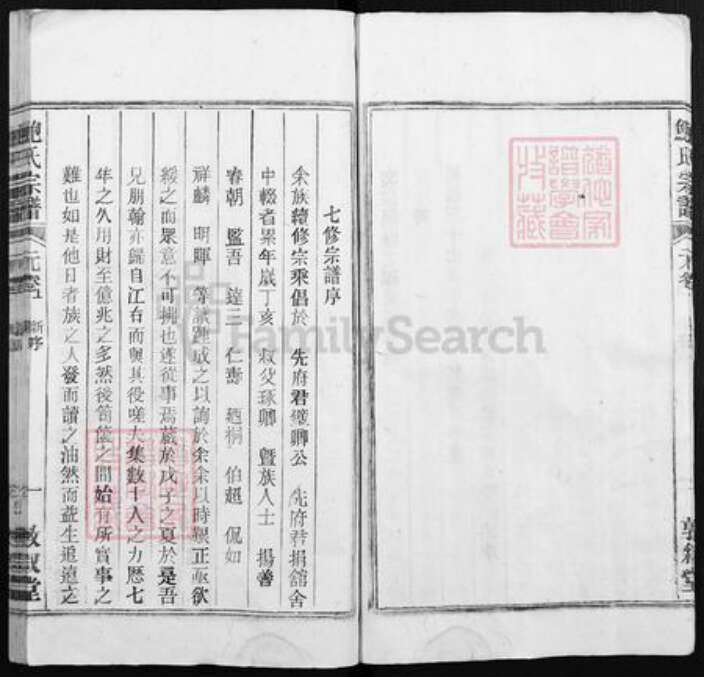 鮑氏宗譜
元卷
七修宗譜序
余族續修宗乘倡於 先府君璧卿公 先府君捐舘舍
中輟者累年歲丁亥 叔父琢卿 曁族人士 揚善
春朝 監吾 達三 仁壽 廼桐 伯超 侃如
祥麟 明暉 等議踵成之以詢於余余以時艱正亟欲
緩之而眾意不可拂也遂從事焉蕆於戊子之夏於是吾
兄朋翰亦歸自江右而與其役嗟夫集數十人之力歷七
年之久用財至億兆之多然後筍簴之間始有所實事之
難也如是他日者族之人發而讀之油然而益生追遠之
鮑氏宗譜
元卷
新序
一
敦敍堂
FamilySearch